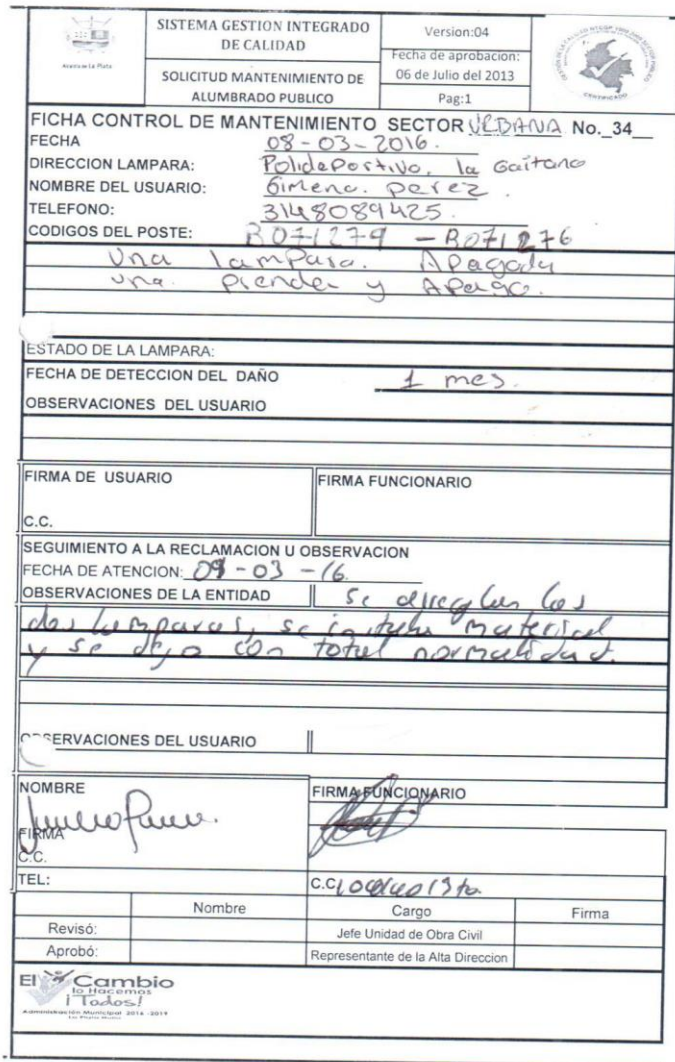 Alcaldía La Plata
SISTEMA GESTION INTEGRADO
DE CALIDAD
SOLICITUD MANTENIMIENTO DE
ALUMBRADO PUBLICO
Version:04
Fecha de aprobacion:
06 de Julio del 2013
Pag:1
CERTIFICADO
FICHA CONTROL DE MANTENIMIENTO SECTOR URBANA No._34__
FECHA 08-03-2016.
DIRECCION LAMPARA: Polideportivo, la Gaitana
NOMBRE DEL USUARIO: Gimena. perez.
TELEFONO: 3148089425.
CODIGOS DEL POSTE: B071279 - B071276
Una lampara. Apagada
una. prende y Apago.
ESTADO DE LA LAMPARA:
FECHA DE DETECCION DEL DAÑO 1 mes.
OBSERVACIONES DEL USUARIO
FIRMA DE USUARIO
C.C.
FIRMA FUNCIONARIO
SEGUIMIENTO A LA RECLAMACION U OBSERVACION
FECHA DE ATENCION: 09-03-16
OBSERVACIONES DE LA ENTIDAD se arreglan las
dos lamparas, se instala material
y se dejo con total normalidad.
OBSERVACIONES DEL USUARIO
NOMBRE
FIRMA
C.C.
TEL:
FIRMA FUNCIONARIO
C.C.
Nombre Cargo Firma
Revisó: Jefe Unidad de Obra Civil
Aprobó: Representante de la Alta Direccion
El Cambio
lo Hacemos
¡Todos!
Administración Municipal 2016 -2019
La Plata Huila